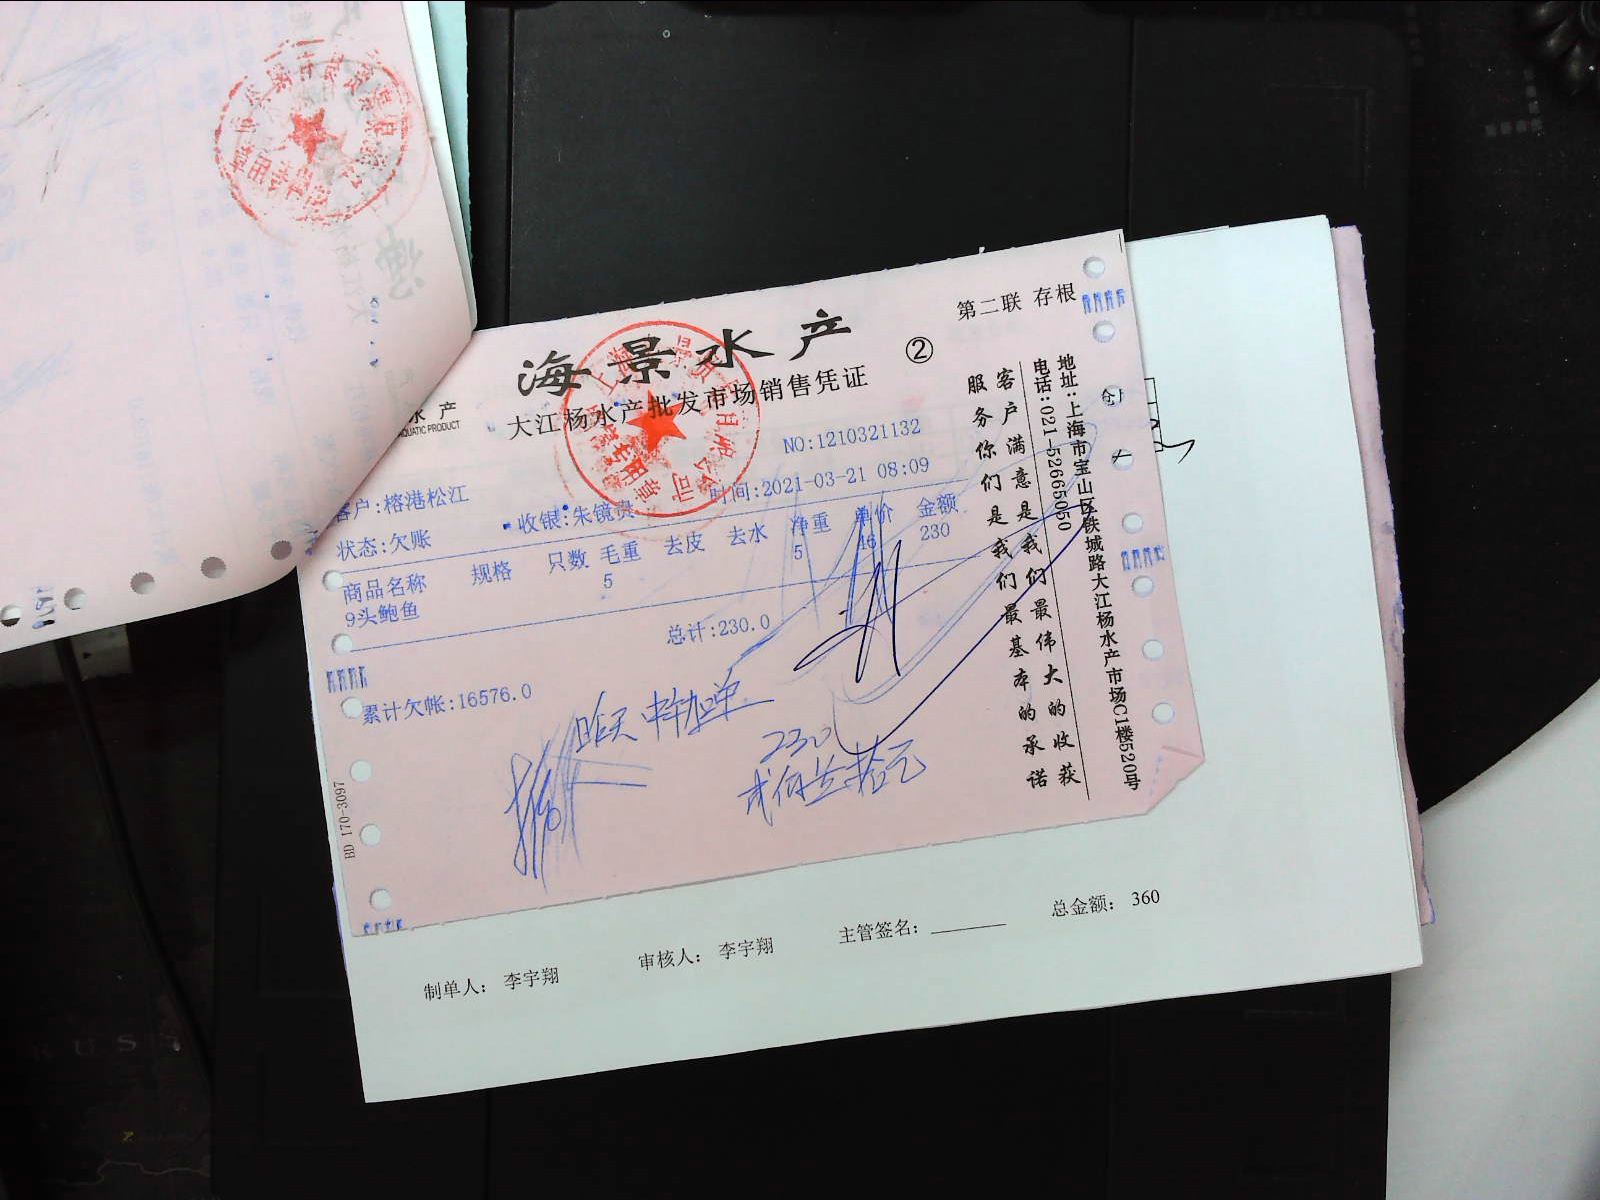 第二联 存根
海景水产
②
水产
AQUATIC PRODUCT
大江杨水产批发市场销售凭证
NO:1210321132
客户:榕港松江
收银:朱镜贵
时间:2021-03-21 08:09
状态:欠账
商品名称 规格 只数 毛重 去皮 去水 净重 单价 金额
9头鲍鱼 5 5 46 230
总计:230.0
累计欠帐:16576.0
昨天中午加单
230
贰佰叁拾元
客户满意是我们最伟大的收获
服务你们是我们最基本的承诺
地址:上海市宝山区铁城路大江杨水产市场C1楼520号
电话:021-52665050
BD 170-3097
制单人: 李宇翔
审核人: 李宇翔
主管签名:
总金额: 360